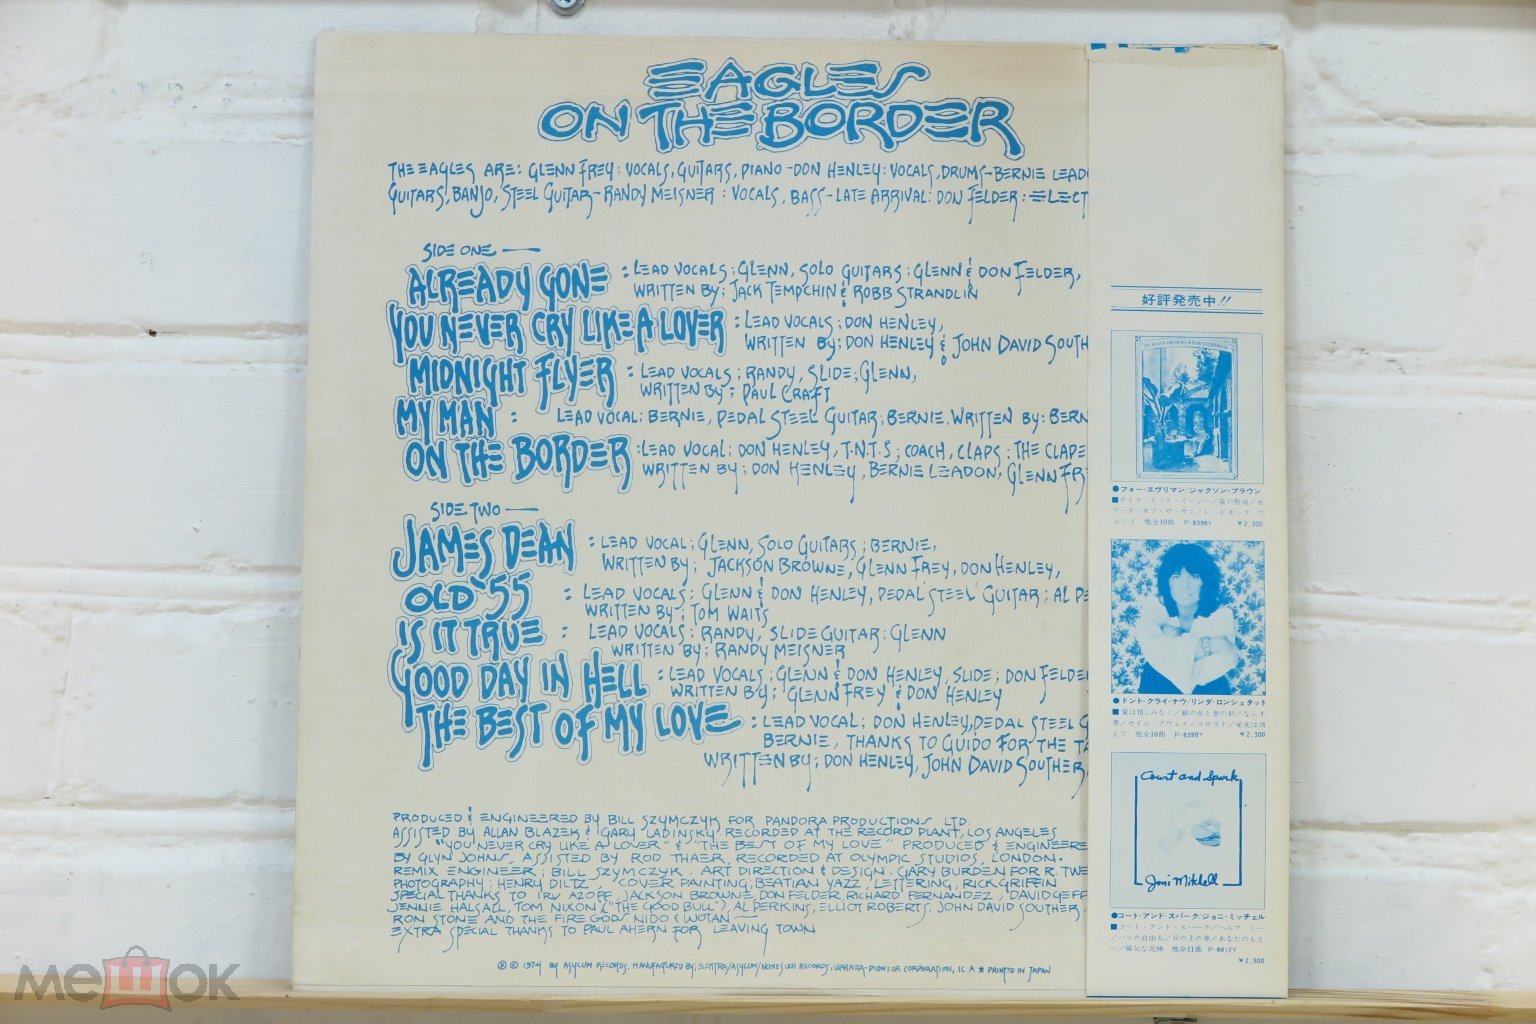 EAGLES
ON THE BORDER
THE EAGLES ARE: GLENN FREY: VOCALS, GUITARS, PIANO - DON HENLEY: VOCALS, DRUMS - BERNIE LEAD
GUITARS, BANJO, STEEL GUITAR - RANDY MEISNER: VOCALS, BASS - LATE ARRIVAL: DON FELDER: ELECT
SIDE ONE —
ALREADY GONE : LEAD VOCALS; GLENN, SOLO GUITARS; GLENN & DON FELDER,
WRITTEN BY; JACK TEMPCHIN & ROBB STRANDLIN
YOU NEVER CRY LIKE A LOVER : LEAD VOCALS; DON HENLEY,
WRITTEN BY; DON HENLEY & JOHN DAVID SOUTH
MIDNIGHT FLYER : LEAD VOCALS; RANDY, SLIDE; GLENN,
WRITTEN BY; PAUL CRAFT
MY MAN : LEAD VOCAL; BERNIE, PEDAL STEEL GUITAR; BERNIE, WRITTEN BY: BERN
ON THE BORDER : LEAD VOCAL; DON HENLEY, T.N.T.S; COACH, CLAPS; THE CLAPE
WRITTEN BY; DON HENLEY, BERNIE LEADON, GLENN FR
SIDE TWO —
JAMES DEAN : LEAD VOCAL; GLENN, SOLO GUITARS; BERNIE,
WRITTEN BY; JACKSON BROWNE, GLENN FREY, DON HENLEY,
OLD '55 : LEAD VOCALS; GLENN & DON HENLEY, PEDAL STEEL GUITAR; AL PE
WRITTEN BY; TOM WAITS
IS IT TRUE : LEAD VOCALS; RANDY, SLIDE GUITAR; GLENN
WRITTEN BY; RANDY MEISNER
GOOD DAY IN HELL : LEAD VOCALS; GLENN & DON HENLEY, SLIDE; DON FELDE
WRITTEN BY; GLENN FREY & DON HENLEY
THE BEST OF MY LOVE : LEAD VOCAL; DON HENLEY, PEDAL STEEL G
BERNIE, THANKS TO GUIDO FOR THE TA
WRITTEN BY; DON HENLEY, JOHN DAVID SOUTHER,
PRODUCED & ENGINEERED BY BILL SZYMCZYK FOR PANDORA PRODUCTIONS LTD.
ASSISTED BY ALLAN BLAZEK & GARY LADINSKY. RECORDED AT THE RECORD PLANT, LOS ANGELES
"YOU NEVER CRY LIKE A LOVER" & "THE BEST OF MY LOVE" PRODUCED & ENGINEERE
BY GLYN JOHNS, ASSISTED BY ROD THAER, RECORDED AT OLYMPIC STUDIOS, LONDON.
REMIX ENGINEER; BILL SZYMCZYK. ART DIRECTION & DESIGN; GARY BURDEN FOR R. TWE
PHOTOGRAPHY; HENRY DILTZ, COVER PAINTING; BEATIAN YAZZ, LETTERING; RICK GRIFFIN
SPECIAL THANKS TO IRV AZOFF, JACKSON BROWNE, DON FELDER, RICHARD FERNANDEZ, DAVID GEFF
JENNIE HALSALL, TOM NIXON ("THE GOOD BULL"), AL PERKINS, ELLIOT ROBERTS, JOHN DAVID SOUTHER,
RON STONE AND THE FIRE GODS NIDO & WOTAN —
EXTRA SPECIAL THANKS TO PAUL AHERN FOR LEAVING TOWN
℗ © 1974 BY ASYLUM RECORDS. MANUFACTURED BY; ELEKTRA/ASYLUM/NONESUCH RECORDS, WARNER-PIONEER CORPORATION, PRINTED IN JAPAN
好評発売中!!
JACKSON BROWNE FOR EVERYMAN
●フォー・エヴリマン/ジャクソン・ブラウン
■テイク・イット・イージー/泉の聖母/カ
ラーズ・オブ・ザ・サン/レッドネック・フ
レンド 他全10曲 P-8398Y ¥2,300
●ドント・クライ・ナウ/リンダ・ロンシュタット
■愛は惜しみなく/銀の糸と金の針/ならず
者/セイル・アウェイ/コロラド/栄光は消
えて 他全10曲 P-8399Y ¥2,300
Court and Spark
Joni Mitchell
●コート・アンド・スパーク/ジョニ・ミッチェル
■コート・アンド・スパーク/ヘルプ・ミー
/パリの自由人/丘の上の車/あなたのもと
へ/陽気な泥棒 他全11曲 P-8412Y
¥2,300
МЕШОК